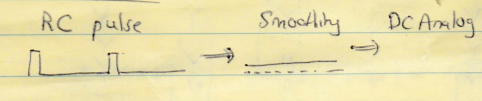 RC pulse Smoothing DC Analog